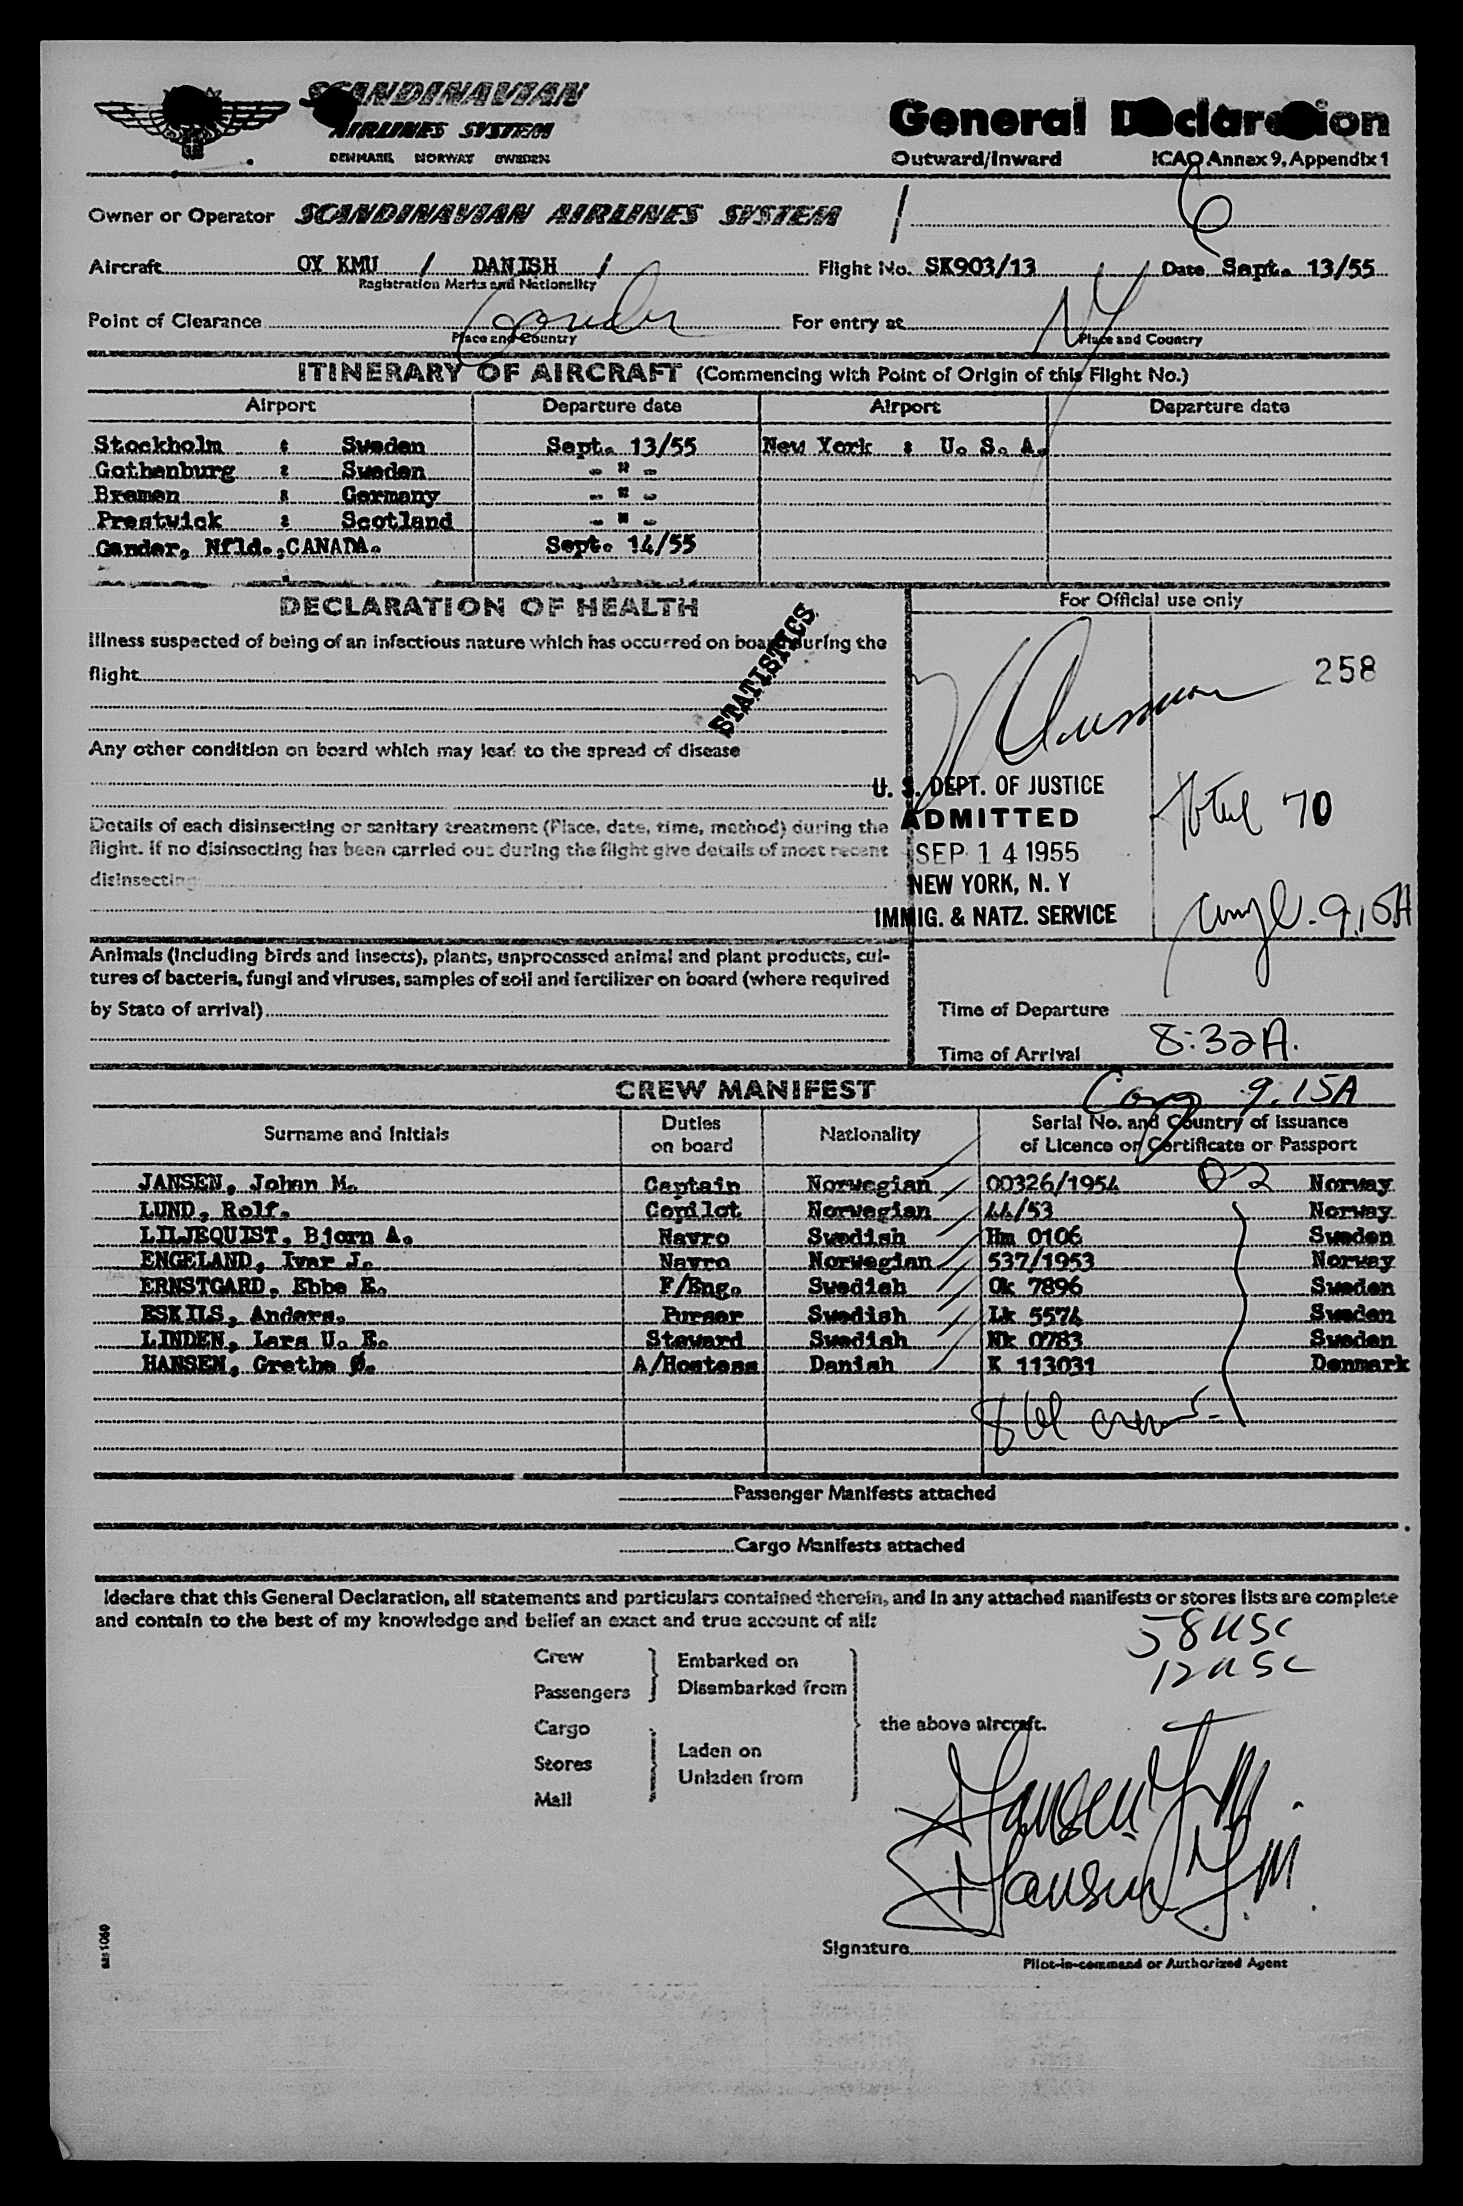 SCANDINAVIAN
AIRLINES SYSTEM
DENMARK NORWAY SWEDEN
General Declaration
Outward/Inward ICAO Annex 9, Appendix 1
Owner or Operator SCANDINAVIAN AIRLINES SYSTEM / 6
Aircraft OY KMU / DANISH / Flight No. SK903/13 Date Sept. 13/55
Registration Marks and Nationality
Point of Clearance Gander For entry at NY
Place and Country Place and Country
ITINERARY OF AIRCRAFT (Commencing with Point of Origin of this Flight No.)
Airport Departure date Airport Departure date
Stockholm : Sweden Sept. 13/55 New York : U. S. A.
Gothenburg : Sweden - " -
Bremen : Germany - " -
Prestwick : Scotland - " -
Gander, Nfld.,CANADA. Sept. 14/55
DECLARATION OF HEALTH
For Official use only
Illness suspected of being of an infectious nature which has occurred on board during the
flight
STATISTICS
258
Any other condition on board which may lead to the spread of disease
U. S. DEPT. OF JUSTICE
ADMITTED
SEP 14 1955
NEW YORK, N. Y
IMMIG. & NATZ. SERVICE
Total 70
9.15A
Details of each disinsecting or sanitary treatment (Place, date, time, method) during the
flight. If no disinsecting has been carried out during the flight give details of most recent
disinsecting
Animals (including birds and insects), plants, unprocessed animal and plant products, cul-
tures of bacteria, fungi and viruses, samples of soil and fertilizer on board (where required
by State of arrival)
Time of Departure
Time of Arrival 8:32A.
CREW MANIFEST
Cong 9.15A
Surname and Initials Duties on board Nationality Serial No. and Country of issuance of Licence or Certificate or Passport
JANSEN, Johan M. Captain Norwegian 00326/1954 D-2 Norway
LUND, Rolf. Copilot Norwegian 44/53 Norway
LILJEQUIST, Bjorn A. Navro Swedish Hm 0106 Sweden
ENGELAND, Ivar J. Navro Norwegian 537/1953 Norway
ERNSTGARD, Ebbe E. F/Eng. Swedish Ok 7896 Sweden
ESKILS, Anders. Purser Swedish Lk 5574 Sweden
LINDEN, Lars U. E. Steward Swedish Nk 0783 Sweden
HANSEN, Grethe Ø. A/Hostess Danish K 113031 Denmark
Passenger Manifests attached
Cargo Manifests attached
I declare that this General Declaration, all statements and particulars contained therein, and in any attached manifests or stores lists are complete
and contain to the best of my knowledge and belief an exact and true account of all:
58 USC
12 USC
Crew Embarked on
Passengers Disembarked from
the above aircraft.
Cargo
Stores Laden on
Unladen from
Mail
Jansen J. M.
Jansen J. M.
Signature
Pilot-in-command or Authorized Agent
sas 1060